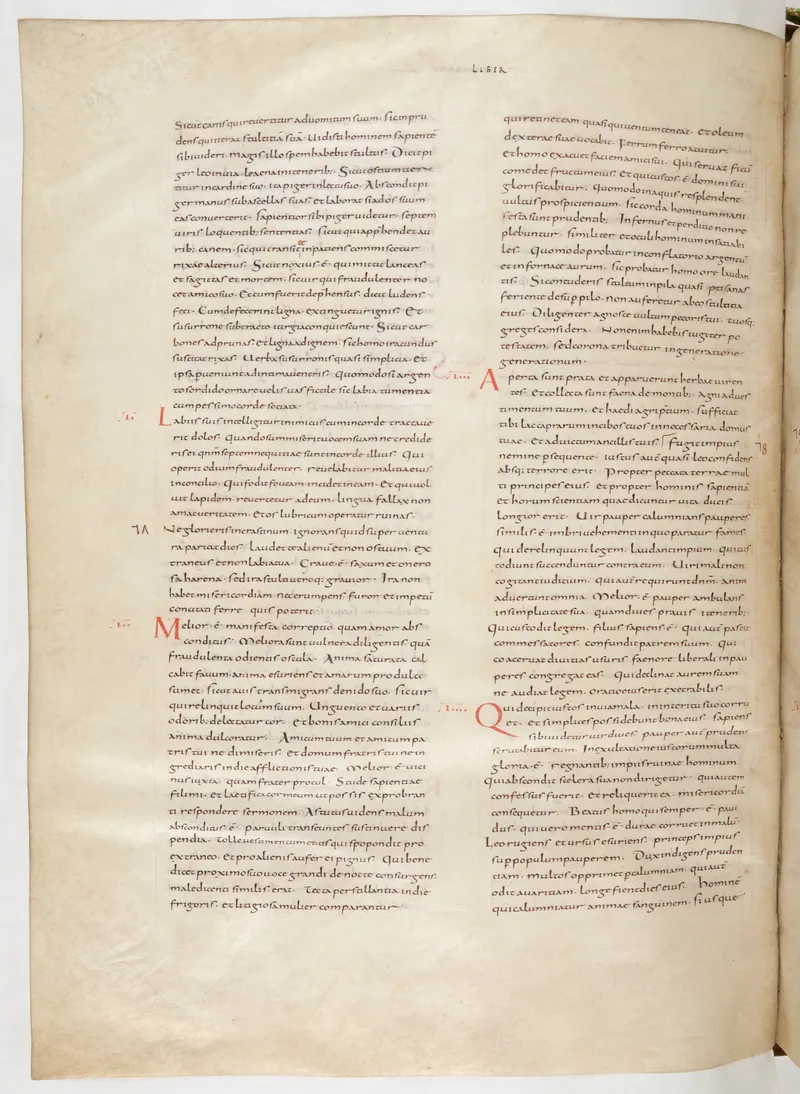 LIBER
Sicut canis qui revertitur ad vomitum suum · sic inpru
dens qui iterat stultitiā suā · Vidisti hominem sapientē
sibi videri · magis illo spem habebit stultus · Dicit pi
ger leo in via · leaena in itenerib; Sicut ostium ver
titur in cardine suo · ita piger in lectu suo · Abscondit pi
ger manus sub ascellas suas · et laborat si ad os suum
eas converterit · sapientior sibi piger videtur · septem
viris loquentib; sententias · sicut qui apphendet au
rib; canem · sic qui transit inpatiens commiscetur
rixae alterius · Sicut noxius ē · qui mittit lanceas
et sagittas et mortem · sicut vir qui fraudulenter no
cet amico suo · Et cum fuerit dephensus · dicit ludens
feci · Cum defecerint ligna · extinguetur ignis · Et
susurrone subtracto · iurgia conquiescunt · Sicut car
bones ad prunas · et ligna ad ignem · sic homo iracundus
suscitat rixas · Verba susurronis quasi simplicia · et
ipsa pveniunt ad intima ventris · Quomodo si argen
to sordido ornare velis vas fictile sic labia tumentia
cum pessimo corde sociata ·
Labiis suis intellegitur inimicus cum in corde tractave
rit dolos · Quando summiserit vocem suam ne credide
ris ei qnm septem nequitiae sunt in corde illius · Qui
operit odium fraudulenter · revelabitur malitia eius
in concilio · Qui fodit foveam · incidet in eam · Et qui vol
vit lapidem · revertetur ad eum · lingua fallax non
amat veritatem · et os lubricum operatur ruinas ·
Ne glorieris in crastinum · ignorans quid super ventu
ra pariat dies · Laudet te alienus et non os tuum · ex
traneus et non labia tua · Grave · ē · saxum et onero
sa harena · sed ira stulti utroq; gravior · Ira non
habet misericordiam · nec erumpens furor · et impetū
concitati ferre quis poterit ·
Melior · ē · manifesta correptio · quam amor abs
conditus · Meliora sunt vulnera diligentis quā
fraudulenta odientis oscula · Anima saturata cal
cabit favum · anima esuriens et amarum pro dulce
sumet · sicut avis transmigrans de nido suo · sic vir
qui relinquit locum suum · Unguento et variis
odorib; delectatur cor · et bonis amici consiliis
anima dulcoratur · Amicum tuum et amicum pa
tris tui ne dimiseris · et domum fratris tui ne in
grediaris in die afflictionis tuae · Melior · ē · vici
nus iuxta · quam frater procul · Stude sapientiae
fili mi · et laetifica cor meum ut possis exprobran
ti respondere sermonem · Astutus videns malum
absconditus · ē · parvuli transeuntes sustinuere dis
pendia · tolle vestimentum eius qui spopondit pro
extraneo · et pro alienis aufer ei pignus · Qui bene
dicet proximo suo voce grandi de nocte consurgens
maledicenti similis erit · Tecta perstillantia in die
frigoris · et litigiosa mulier comparantur
qui retinet eam quasi qui ventum teneat · et oleum
dexterae suae vocabit · Ferrum ferro acuitur
et homo exacuet faciem amici sui · Qui servat ficū
comedet fructum eius · Et qui custos · ē · domini sui
glorificabitur · Quomodo in aquis resplendent
vultus prospicientium · sic corda hominum mani
festa sunt prudentib; Infernus et perditio non re
plebuntur · similiter et oculi hominum insatiabi
les · Quomodo probatur in conflatorio argentū
et in fornace aurum · sic probatur homo ore laudan
tis · Si contuderis stultum in pila quasi ptisanas
feriente desup pilo · non auferetur ab eo stultitia
eius · Diligenter agnosce vultum pecoris tui · tuosq;
greges considera · Non enim habebis iugiter po
testatem · sed corona tribuetur in generatione
generationum ·
Aperta sunt prata et apparuerunt herbae viren
tes · et collecta sunt faena de montib; Agni ad ves
timentum tuum · et haedi agri ptium · Sufficiat
tibi lac caprarum in cibos tuos in necessaria domus
tuae · et ad victum ancillis tuis Fugit impius
nemine psequente · iustus aut quasi leo confidens
absq; terrore erit · Propter peccata terrae mul
ti principes eius · et propter hominis sapientiā
et horum scientiam quae dicuntur vita ducis
longior erit · Vir pauper calumnians pauperes
similis · ē · imbri vehementi in quo paratur fames ·
Qui derelinquunt legem · laudant impium · qui cus
todiunt succenduntur contra eum · Viri mali non
cogitant iudicium · qui aut requirunt dnm · anim
advertunt omnia · Melior · ē · pauper ambulans
in simplicitate sua · quam dives pravis iteneribus
Qui custodit legem · filius sapiens · ē · qui aut pascit
commessatores · confundit patrem suum · Qui
coacervat divitias usuris faenore liberali in pau
peres congregat eas · Qui declinat aurem suam
ne audiat legem · oratio eius erit execrabilis ·
Qui decipit iustos in via mala · in interitu suo corru
et · et simplices possidebunt bona eius · Sapiens
sibi videtur vir dives · pauper aut prudens
scrutabitur eum · In exultatione iustorum multa
gloria · ē · regnantib; impiis ruinae hominum ·
Qui abscondit scelera sua non dirigetur · qui autem
confessus fuerit · et reliquerit ea · misericordiā
consequetur · Beatus homo qui semper · ē · pavi
dus · qui vero mentis · ē · durae corruet in malū ·
Leo rugiens et ursus esuriens · princeps impius
sup populum pauperem · Dux indigens pruden
tiam · multos opprimet p calumniam · qui aut
odit avaritiam · longe fient dies eius · Hominē
qui calumniatur animae sanguinem · si usque